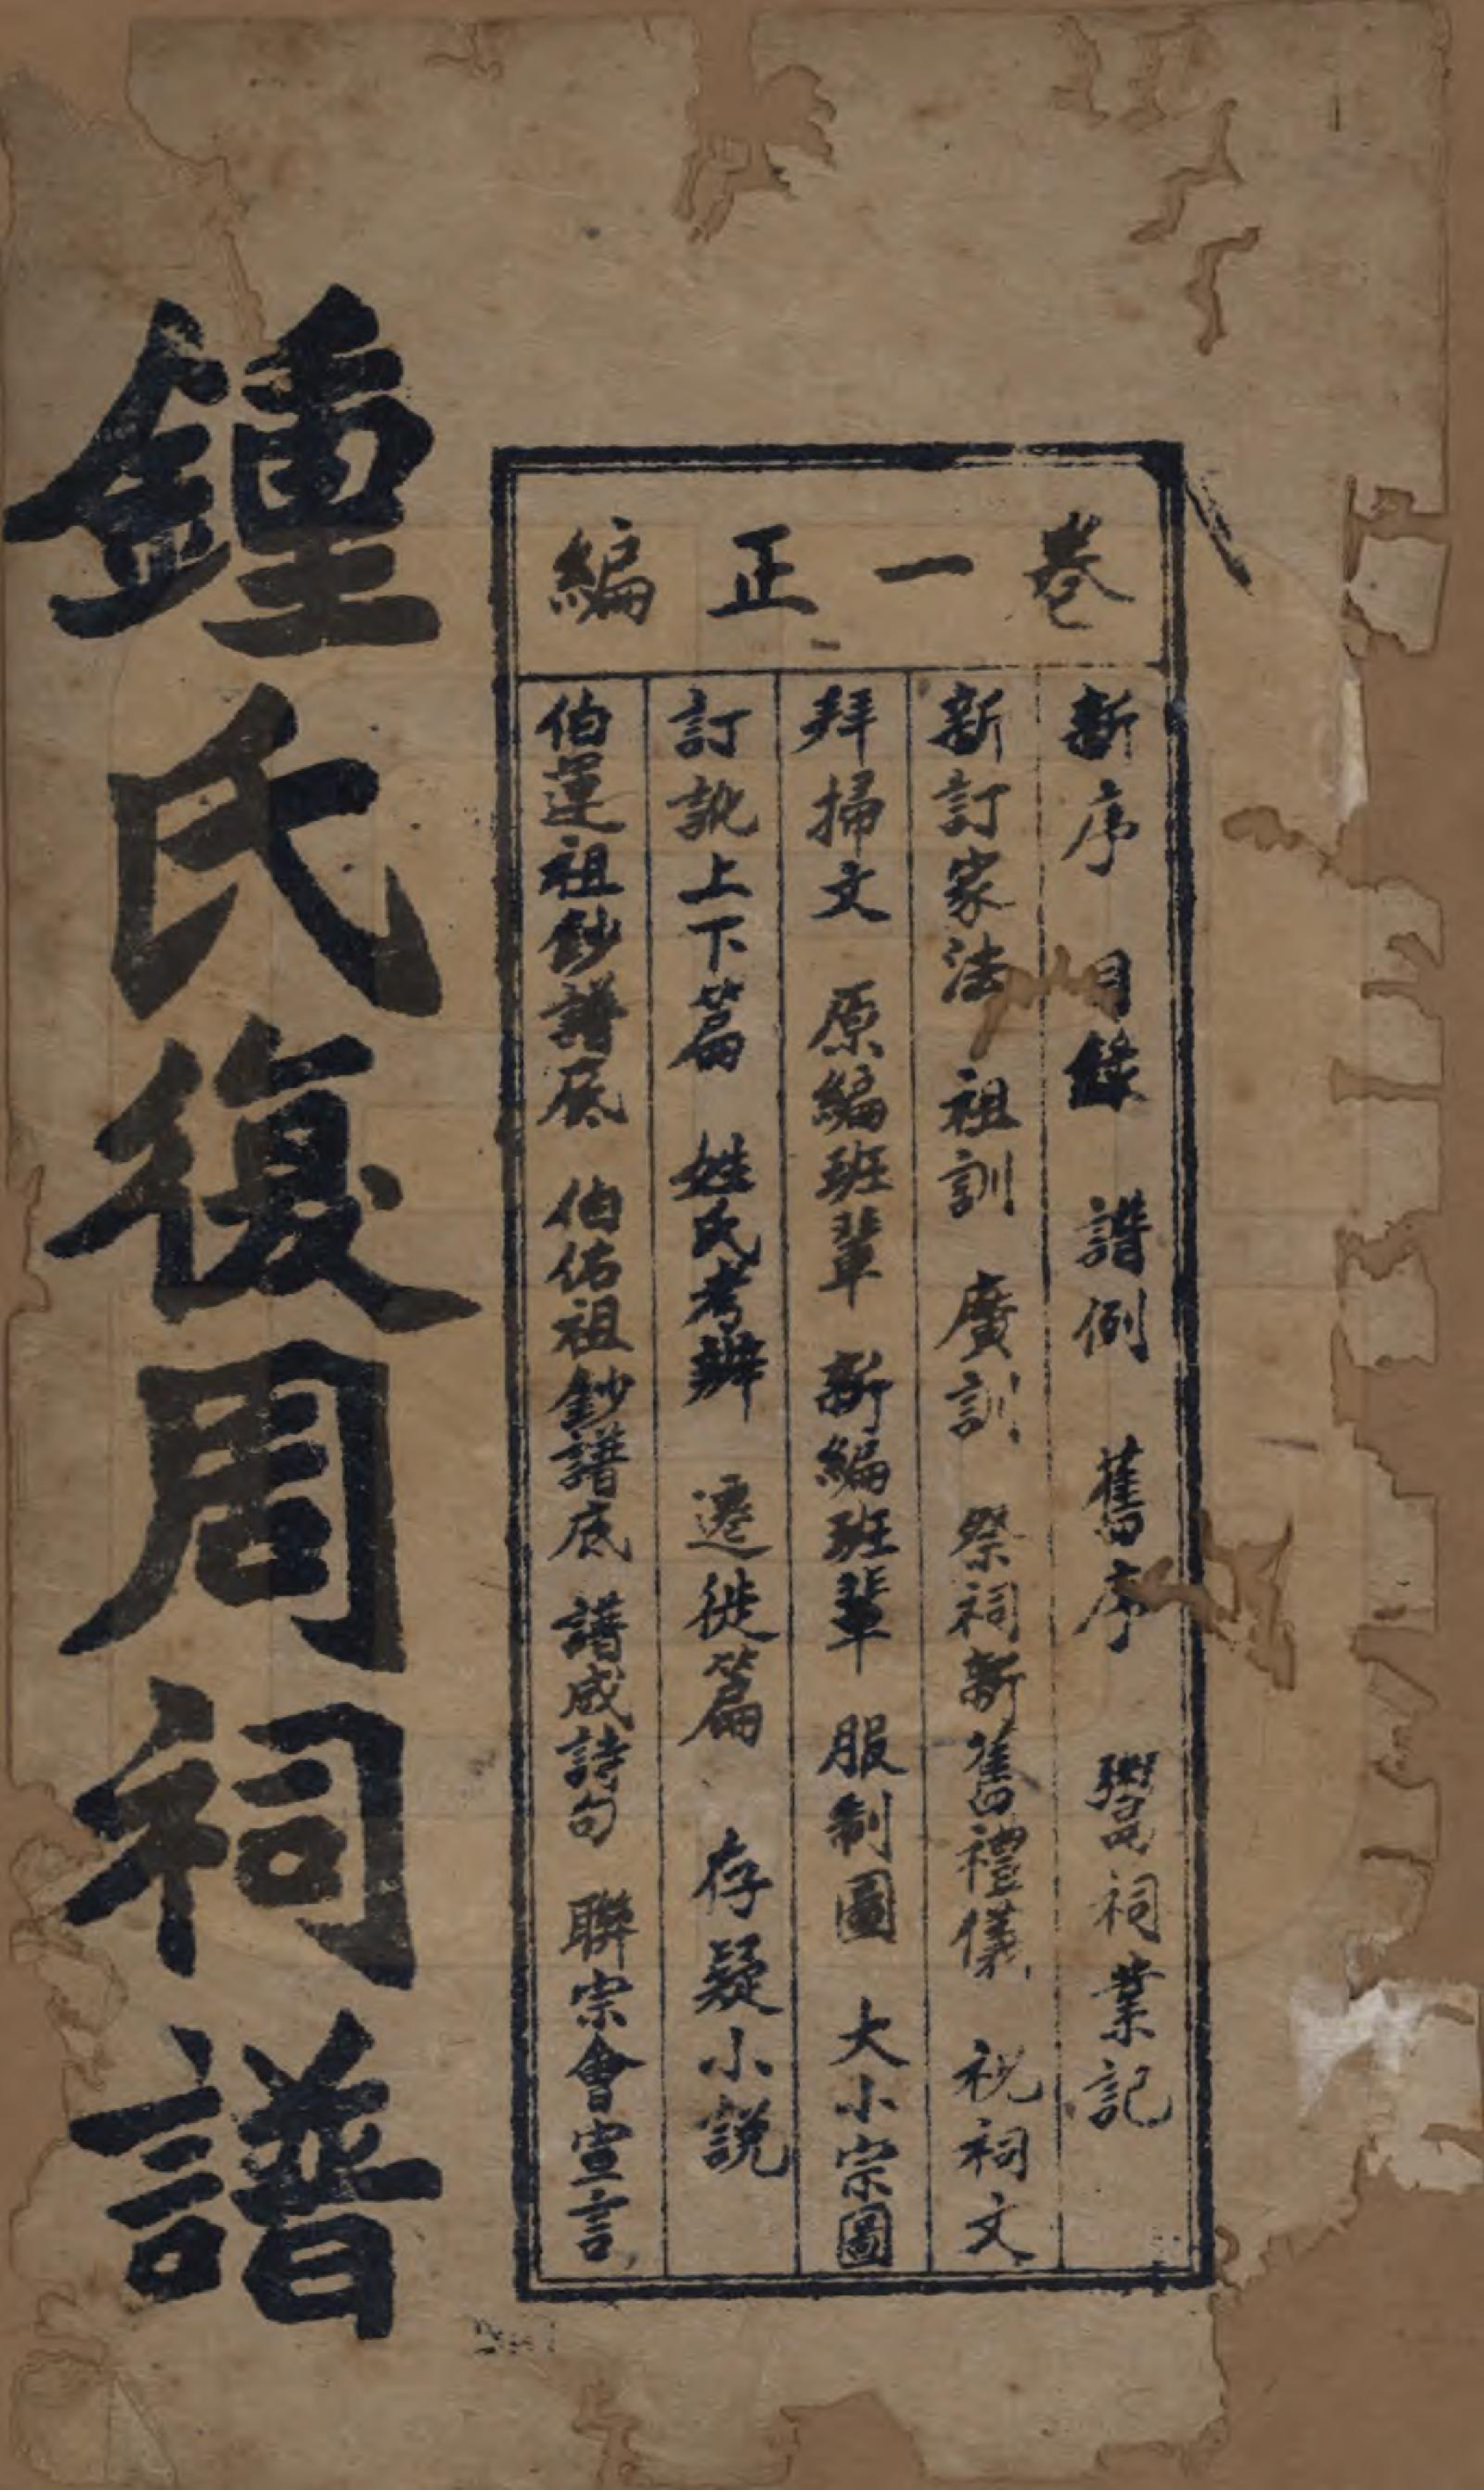 卷一正編
新序 目錄 譜例 舊序 嚳祠業記
新訂家法 祖訓 廣訓 祭祠新舊禮儀 祝祠文
拜掃文 原編班輩 新編班輩 服制圖 大小宗圖
訂訛上下篇 姓氏考辨 遷徙篇 存疑小說
伯運祖鈔譜底 伯佑祖鈔譜底 譜成詩句 聯宗會宣言
鍾氏復周祠譜